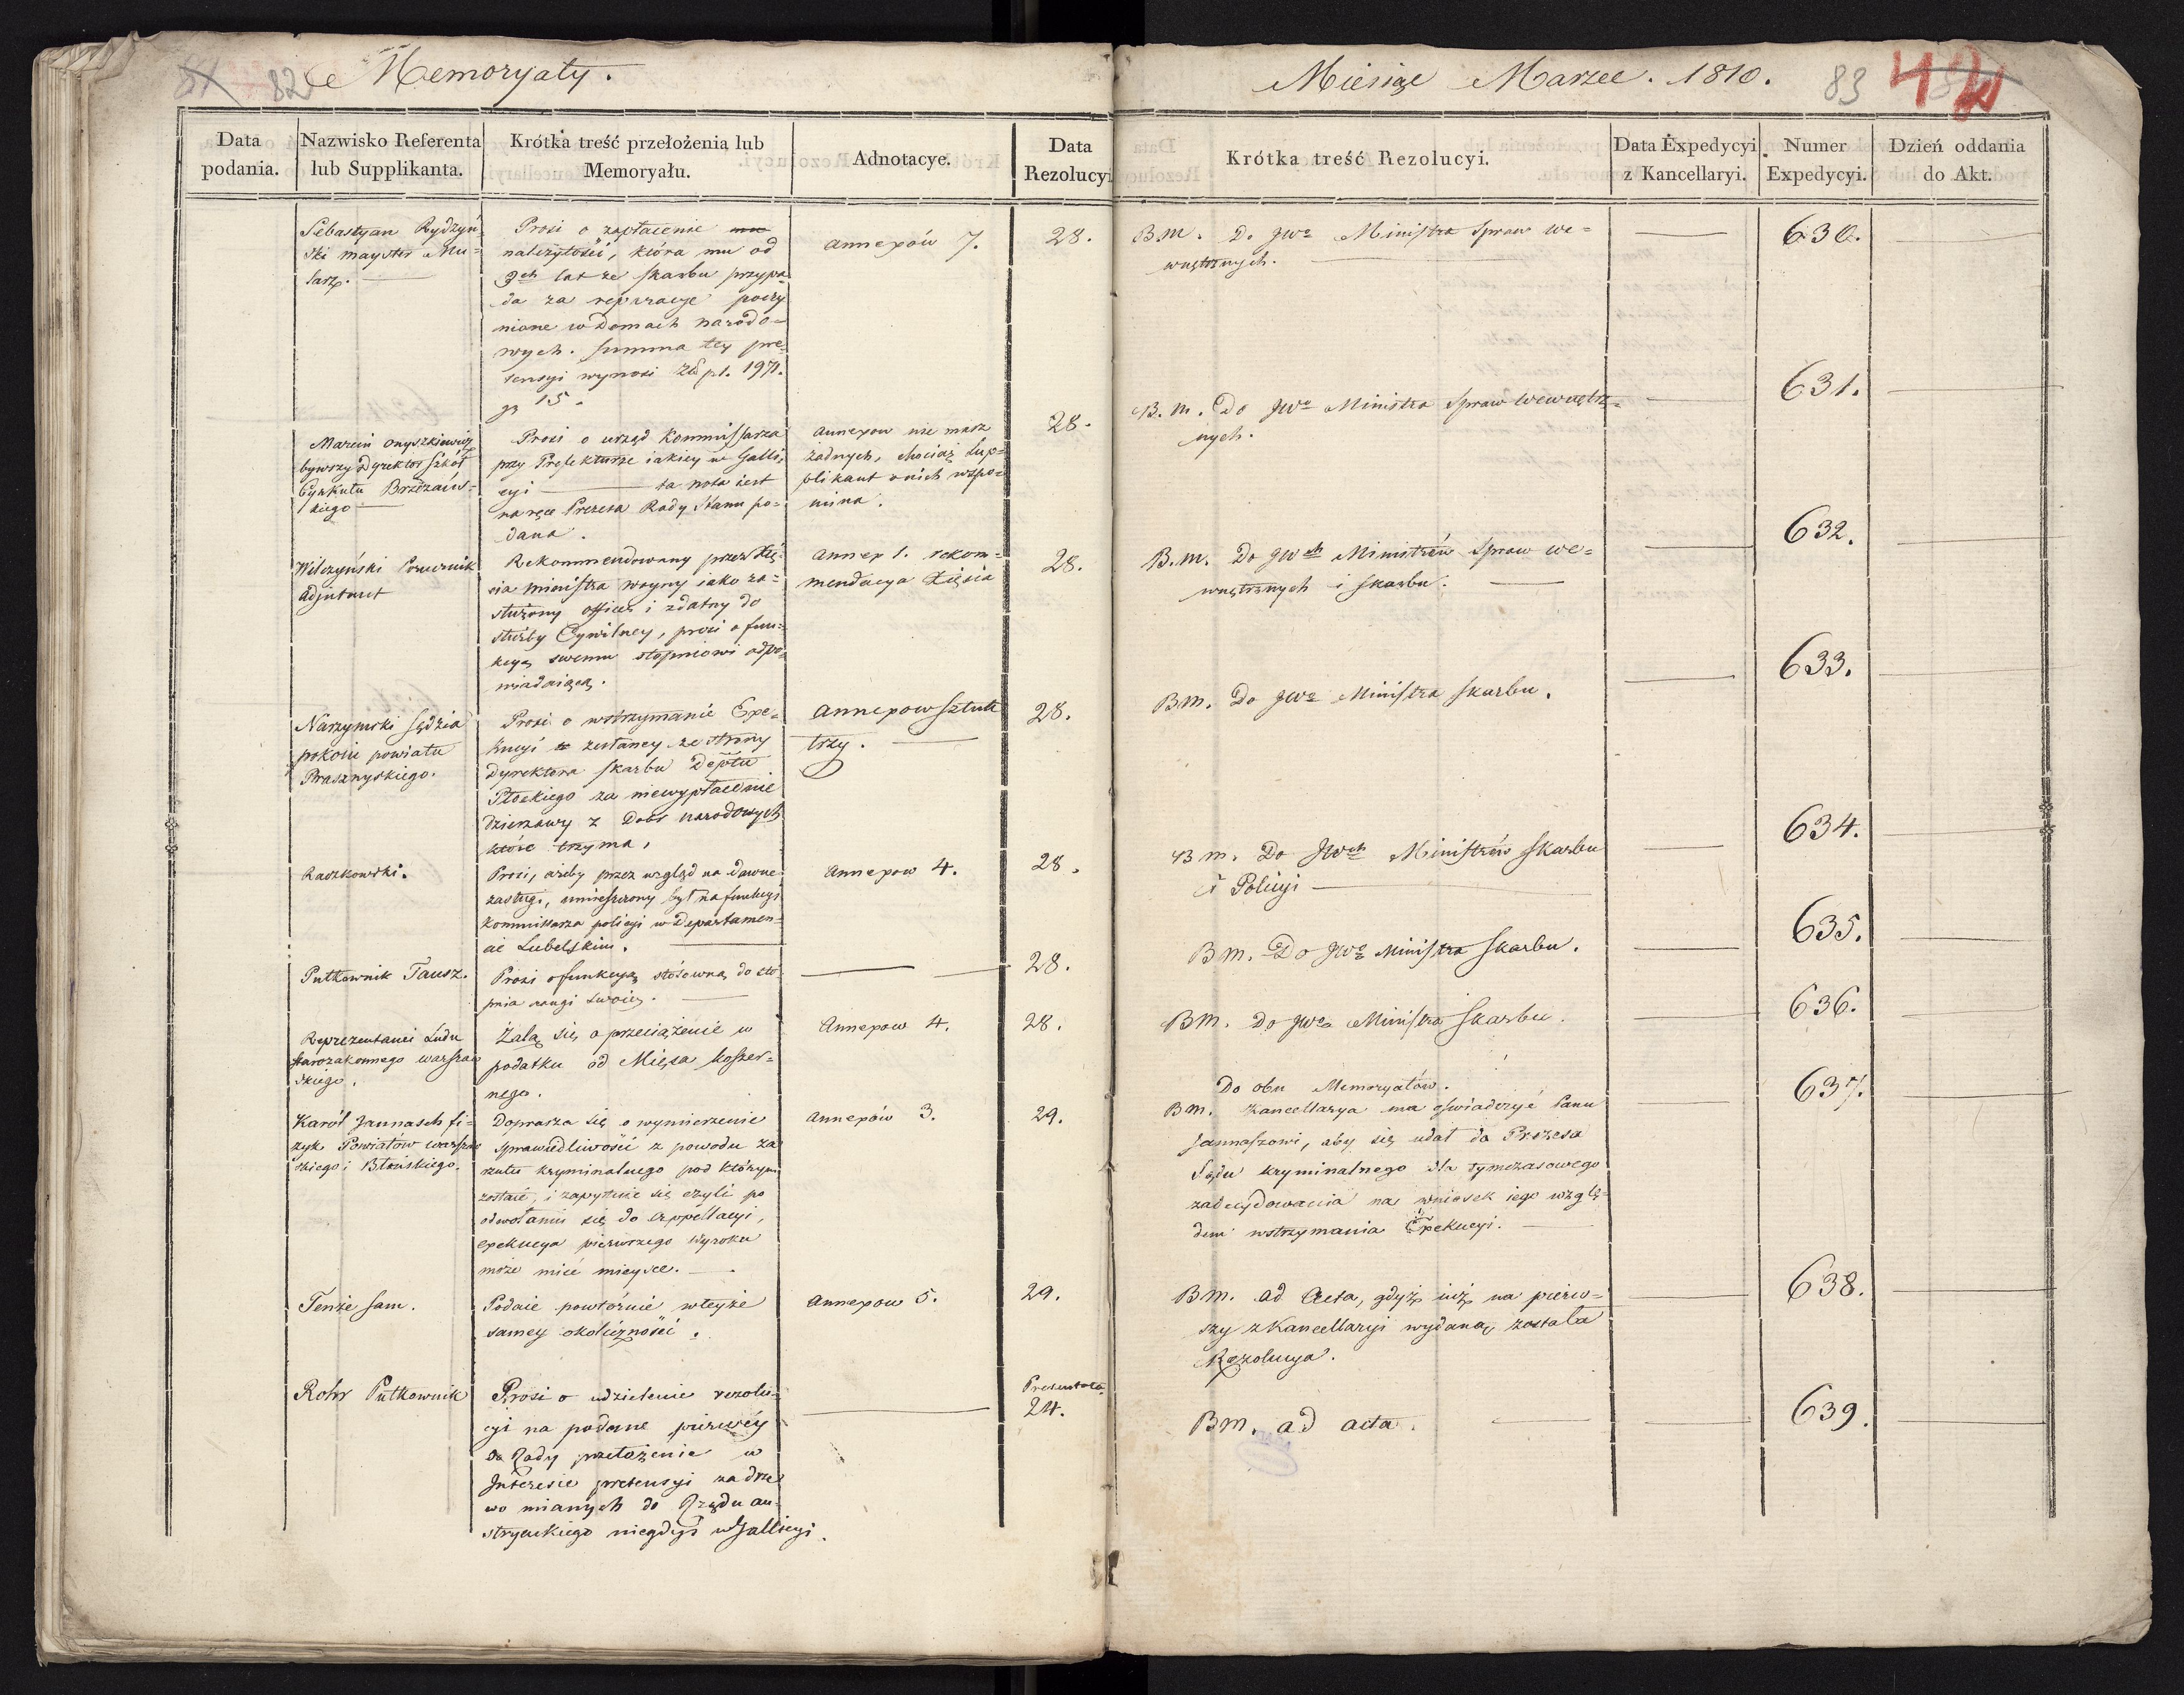 81 82 Memoryały.
Miesiąc Marzec. 1810. 83
Data podania.
Nazwisko Referenta lub Supplikanta.
Krótka treść przełożenia lub Memoryału.
Adnotacye.
Data Rezolucyi
Krótka treść Rezolucyi.
Data Expedycyi z Kancellaryi.
Numer Expedycyi.
Dzień oddania do Akt.
Sebastyan Rydzyń=
ski mayster Mu=
larz.
Prosi o zapłacenie
należytości, która mu od
3ch lat ze skarbu przypa=
da za reperacye poczy
nione w Domach narodo=
wych. Summa tey pre=
tensyi wynosi Złpl. 1971.
gr 15.
Annexów 7.
28.
B.M. Do JWo Ministra Spraw we=
wnętrznych.
630.
Marcin Onyszkiewicz
bywszy Dyrektor Szkół
Cyrkułu Brzeżańs=
kiego
Prosi o urząd Kommissarza
przy Prefekturze iakiey w Galli=
cyi ta nota iest
na ręce Prezesa Rady Stanu po=
dana.
Annexow nie masz
żadnych, chociaż sup=
plikant o nich wspo=
mina.
28.
B.M. Do JWo Ministra Spraw Wewnętrz=
nych.
631.
Wilczyński Porucznik
Adjutant
Rekommendowany przez Xię=
cia Ministra woyny iako za=
służony officer i zdatny do
służby Cywilney, prosi o fun=
kcyą swemu stopniowi odpo=
wiadaiącą.
Annex 1. rekom=
mendacya Xięcia
28.
B.M. Do JWch Ministrów Spraw we=
wnętrznych i Skarbu.
632.
Narzymski Sędzia
pokoiu powiatu
Prasznyskiego.
Prosi o wstrzymanie Exe=
kucyi zesłaney ze strony
Dyrektora Skarbu Deptu
Płockiego za niewypłacenie
dzierzawy z Dobr narodowych
które trzyma.
Annexow sztuk
trzy.
28.
B.M. Do JWo Ministra Skarbu.
633.
Raczkowski.
Prosi, ażeby przez wzgląd na dawne
zasługi, umieszczony był na funkcyi
Kommissarza policyi w Departamen=
cie Lubelskim.
Annexow 4.
28.
B.M. Do JWch Ministrów Skarbu
i Policyi
634.
Pułkownik Tausz.
Prosi o funkcyą stósowną do sto=
pnia rangi swoiey.
28.
B.M. Do JWo Ministra Skarbu.
635.
Reprezentanci Ludu
starozakonnego warszaw
skiego.
Żalą się o przeciążenie w
podatku od Mięsa koszer=
nego.
Annexow 4.
28.
B.M. Do JWo Ministra Skarbu.
636.
Karól Jannasch fi=
zyk Powiatów warszaw
skiego i Błońskiego.
Doprasza się o wymierzenie
sprawiedliwości z powodu za
rzutu kryminalnego pod którym
zostaie, i zapytuie się czyli po
odwołaniu się do Appellacyi,
exekucya pierwszego wyroku
może mieć mieysce.
Annexów 3.
29.
Do obu Memoryałów.
B.M. Kancellarya ma oświadczyć Panu
Jannaszowi, aby się udał do Prezesa
Sądu kryminalnego dla tymczasowego
zadecydowania na wniosek iego wzglę=
dem wstrzymania Exekucyi.
637.
Tenże sam.
Podaie powtórnie w teyże
samey okoliczności.
Annexow 5.
29.
B.M. ad Acta, gdyż iuż na pierw=
szy z Kancellaryi wydaną została
Rezolucya.
638.
Rohr Pułkownik
Prosi o udzielenie rezolu=
cyi na podane pierwéy
do Rady przełożenie w
Interesie pretensyi za drze
wo mianych do Rządu au=
stryackiego niegdyś w Gallicyi.
24.
B.M. ad acta.
639.